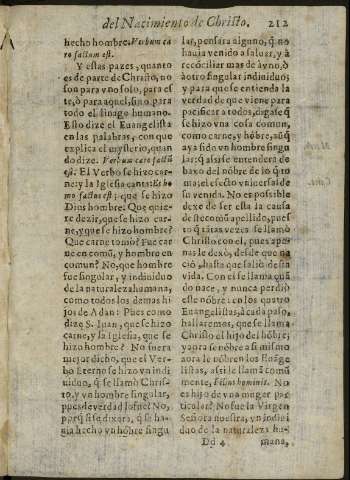 del Nacimiento de Christo. 212
hecho hombre. Verbum ca
ro factum est.
Y estas pazes, quanto
es de parte de Christo, no
son para vno solo, para es
te, ò para aquel, sino para
todo el linage humano.
Esto dize el Euangelista
en las palabras, con que
explica el mysterio, quan
do dize. Verbum caro factũ
est. El Verbo se hizo car-
ne: y la Iglesia canta: Et ho
mo factus est; que se hizo
Dios hombre: Que quie-
re dezir, que se hizo car-
ne, y que se hizo hombre?
Que carne tomò? Fue car
ne en comũ, y hombre en
comun? No, que hombre
fue singular, y indiuiduo
de la naturaleza humana,
como todos los demas hi
jos de Adan: Pues como
dize S. Iuan, que se hizo
carne, y la Iglesia, que se
hizo hombre? No fuera
mejor dicho, que el Ver-
bo Eterno se hizo vn indi
uiduo, q̃ se llamò Chris-
to, y vn hombre singular,
pues de verdad lo fue? No,
porq̃ si se dixera, q̃ se ha-
uia hecho vn hõbre singu
lar, pensara alguno, q̃ no
hauia venido a saluar, y à
recõciliar mas de à vno, ò
à otro singular indiuiduo;
y para que se entienda la
verdad de que viene para
pacificar a todos, digase q̃
se hizo vna cosa comun,
como carne, y hõbre, aũq̃
aya sido vn hombre singu
lar: q̃ assi se entendera de
baxo del nõbre de lo que to
ma, el efecto vniuersal de
su venida. No es possible
dexe de ser esta la causa
de ser comũ apellido, pues
to q̃ tãtas vezes se llamò
Christo con el, pues ape-
nas le dexò, desde que na
ciò, hasta que salio desta
vida. Con el se llama quã
do nace, y nunca perdiò
este nõbre: en los quatro
Euangelistas, à cada paso,
hallaremos, que se llama
Christo el hijo del hõbre,
y para se nõbre a si mismo
aora le nõbren los Euãge
listas, assi le llamã comũ
mente, Filius hominis. No
es hijo de vna muger par
ticolar? No fue la Virgen
Señora nuestra, vn indiui
duo de la naturaleza hu-
Dd 4 mana,